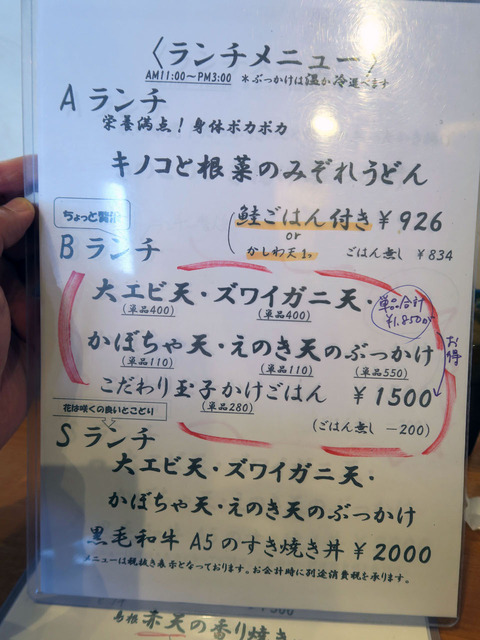 〈ランチメニュー〉
AM11:00～PM3:00 ＊ぶっかけは温か冷選べます
A ランチ
栄養満点！身体ポカポカ
キノコと根菜のみぞれうどん
鮭ごはん付き ¥926
or
かしわ天1つ ごはん無し ¥834
ちょっと贅沢
B ランチ
大エビ天・ズワイガニ天・
(単品400) (単品400)
単品合計
¥1,850が
お得
かぼちゃ天・えのき天のぶっかけ
(単品110) (単品110) (単品550)
こだわり玉子かけごはん ¥1500
(単品280)
(ごはん無し －200)
花は咲くの良いとこどり
S ランチ
大エビ天・ズワイガニ天・
かぼちゃ天・えのき天のぶっかけ
黒毛和牛 A5のすき焼き丼 ¥2000
メニューは税抜き表示となっております。お会計時に別途消費税を承ります。
島根 赤天の香り焼き